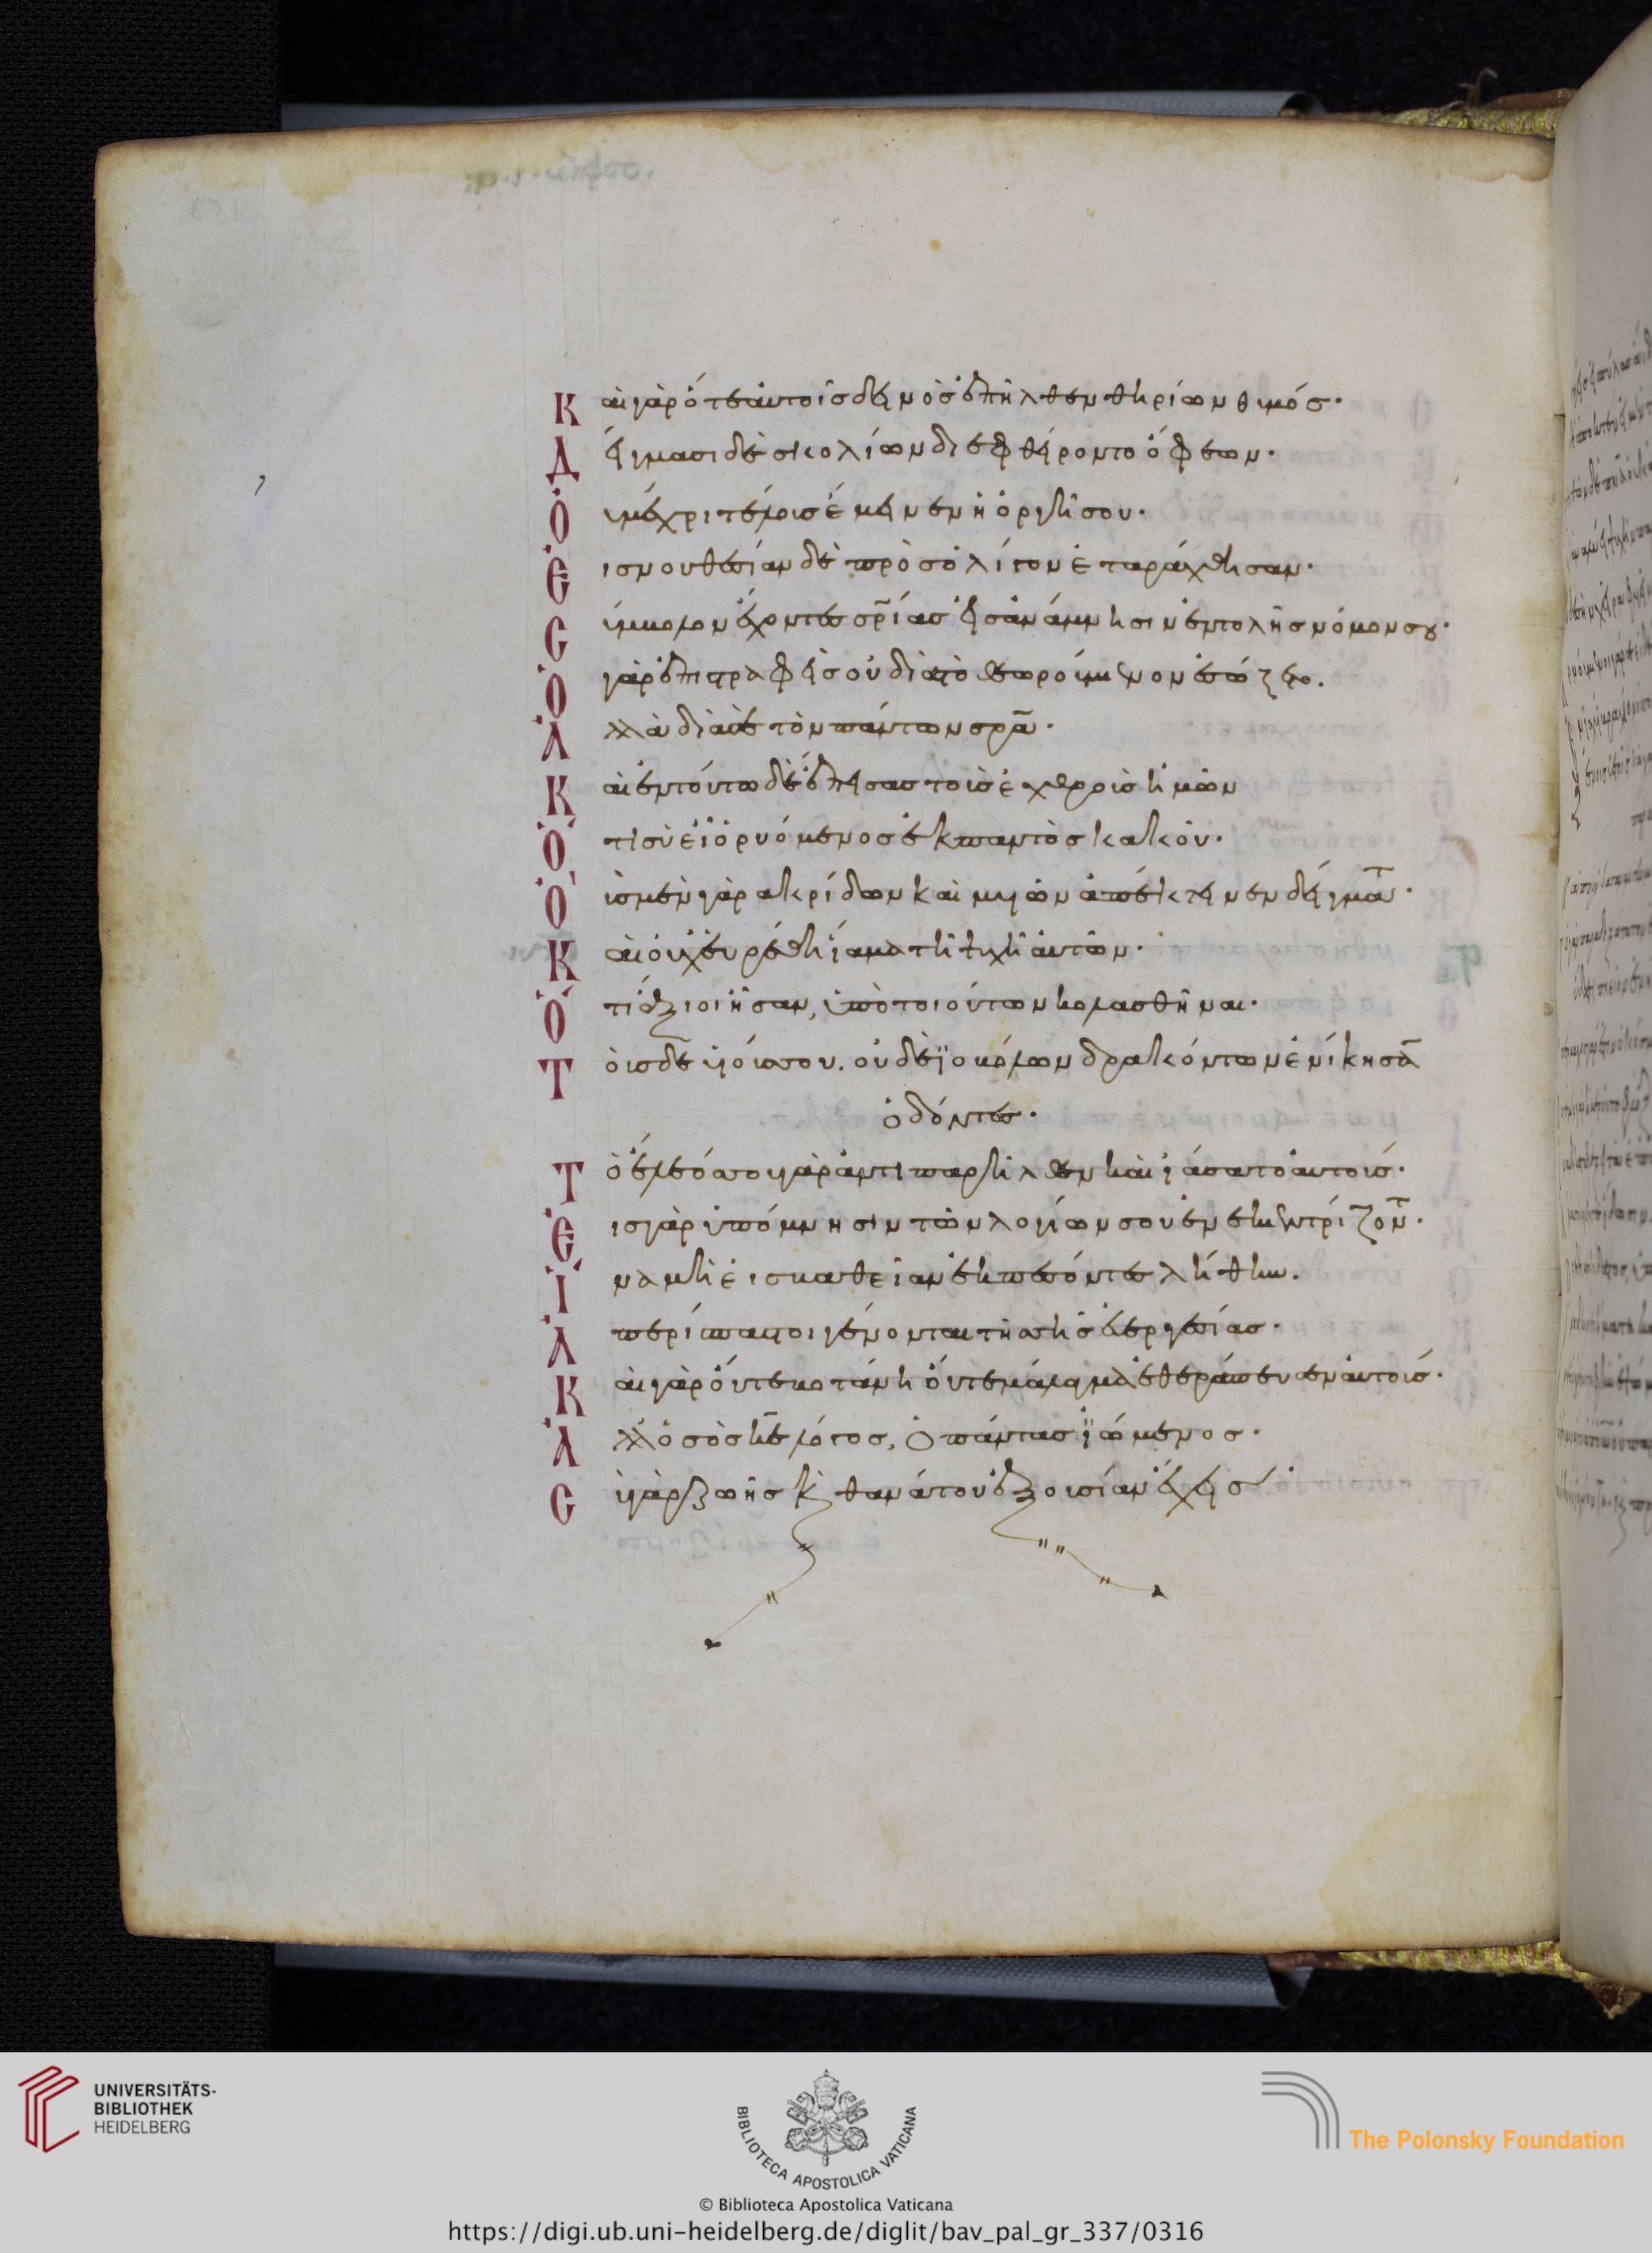 Καὶ γὰρ ὅτε αὐτοῖς δεινὸς ἐπῆλθεν θηρίων θυμός·
Δείγμασι δὲ σκολιῶν διεφθείροντο ὄφεων·
Οὐ μέχρι τέλους ἔμεινεν ἡ ὀργή σου·
Εἰς νουθεσίαν δὲ πρὸς ὀλίγον ἐταράχθησαν·
Σύμβολον ἔχοντες σρίας εἰς ἀνάμνησιν ἐντολῆς νόμου σου·
Ὁ γὰρ ἐπιστραφεὶς οὐ διὰ τὸ θεωρούμενον ἐσώζετο.
Ἀλλὰ διὰ σὲ τὸν πάντων σρα·
Καὶ ἐν τούτω δὲ ἔπεισας τοῖς ἐχθροῖς ἡμῶν
Ὅτι σὺ εἶ ὁ ρυόμενος ἐκ παντὸς κακοῦ·
Οὓς μὲν γὰρ ακρίδων καὶ μυιῶν ἀπέκτεινεν δείγματα·
Καὶ οὐχ εὑρέθη ἴαμα τῆ ψυχῆ αὐτῶν·
Ὅτι ἄξιοι ἦσαν, ὑπὸ τοιούτων κολασθῆναι·
Τοὺς δὲ υἱούς σου. οὐδὲ ἰοβόλων δρακόντων ἐνίκησαν
ὀδόντες·
Τὸ ἔλεός σου γὰρ ἀντιπαρῆλθεν καὶ ἰάσατο αὐτούς·
Εἰς γὰρ ὑπόμνησιν τῶν λογίων σου ἐνεκεντρίζοντ·
Ἵνα μὴ εἰς βαθεῖαν ἐμπεσόντες λήθην.
Ἀπερίσπαστοι γένονται τῆς σῆς εὐεργεσίας·
Καὶ γὰρ οὔτε βοτάνη οὔτε μάλαγμα ἐθεράπευσεν αὐτούς·
Ἀλλ' ὁ σὸς κε λόγος, ὁ πάντας ἰώμενος·
Σὺ γὰρ ζωῆς καὶ θανάτου ἐξουσίαν ἔχεις·
UNIVERSITÄTS-
BIBLIOTHEK
HEIDELBERG
BIBLIOTECA APOSTOLICA VATICANA
The Polonsky Foundation
© Biblioteca Apostolica Vaticana
https://digi.ub.uni-heidelberg.de/diglit/bav_pal_gr_337/0316